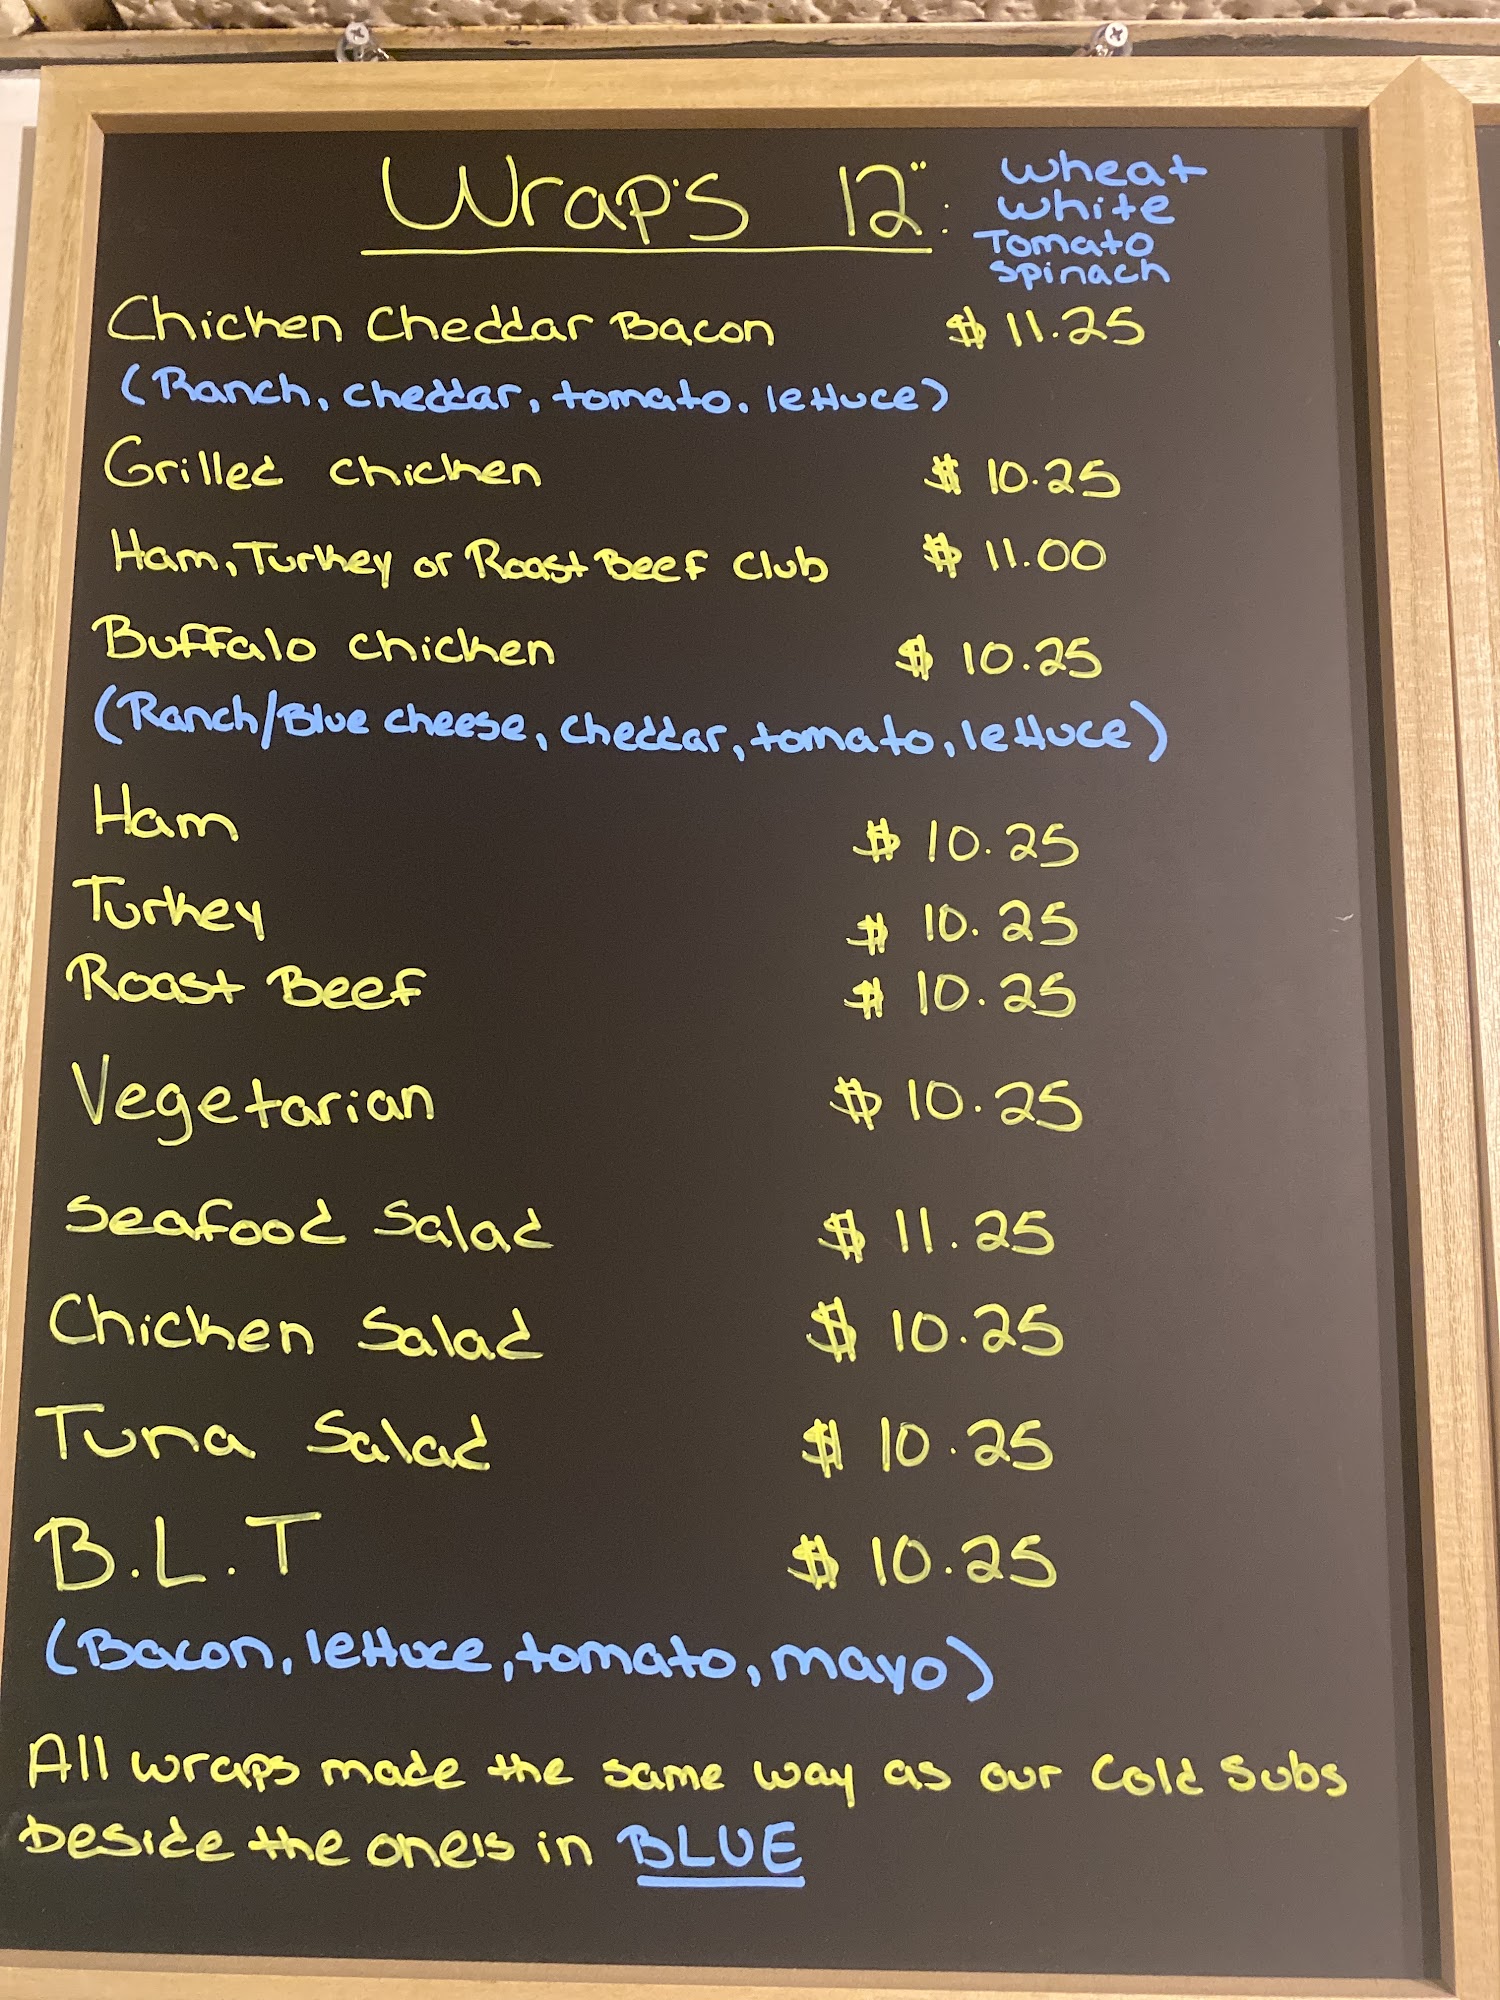 Wrap's 12":
wheat
white
Tomato
spinach
Chicken Cheddar Bacon $ 11.25
(Ranch, cheddar, tomato, lettuce)
Grilled chicken $ 10.25
Ham, Turkey or Roast Beef Club $ 11.00
Buffalo chicken $ 10.25
(Ranch/Blue cheese, cheddar, tomato, lettuce)
Ham $ 10.25
Turkey $ 10.25
Roast Beef $ 10.25
Vegetarian $ 10.25
Seafood Salad $ 11.25
Chicken Salad $ 10.25
Tuna Salad $ 10.25
B.L.T $ 10.25
(Bacon, lettuce, tomato, mayo)
All wraps made the same way as our Cold Subs
beside the one's in BLUE